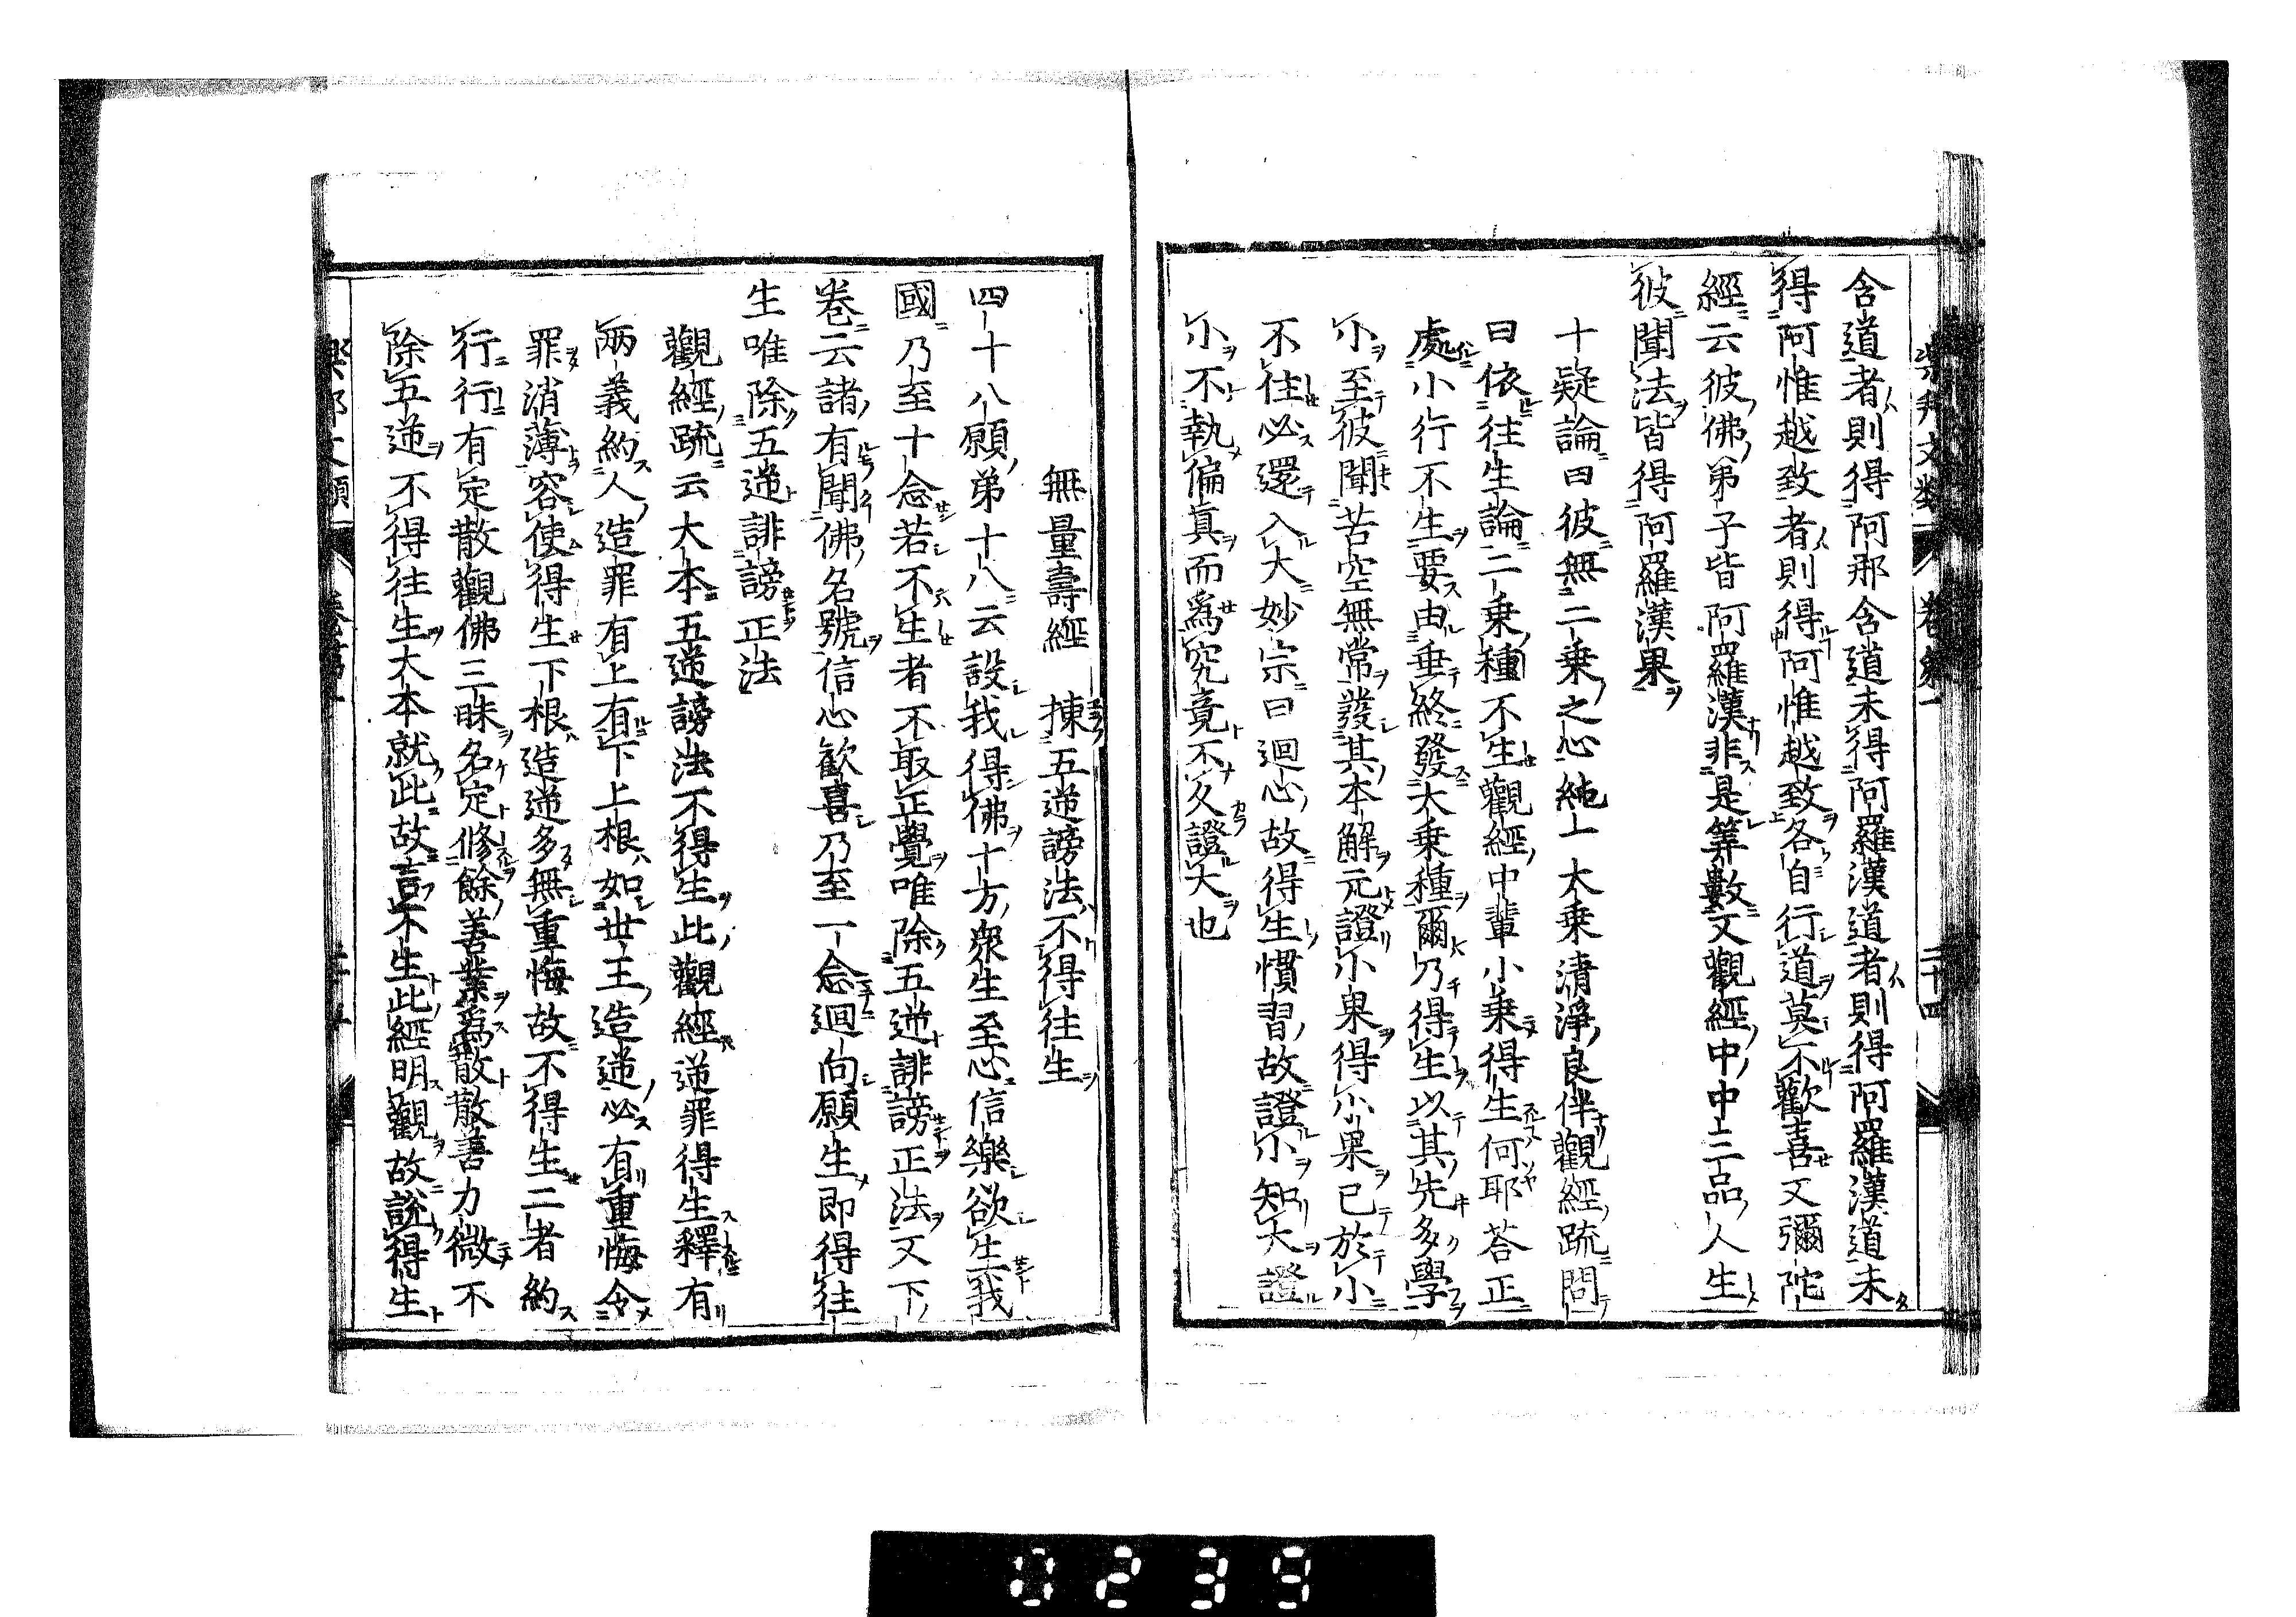 含道者則得阿那含道未得阿羅漢道者則得阿羅漢道未
得阿惟越致者則得阿惟越致各自行道莫不歡喜又彌陀
經云彼佛弟子皆阿羅漢非是筭數又觀經中中三品人生
彼聞法皆得阿羅漢果
十疑論曰彼無二乗之心純一大乗清淨良伴觀經疏問
曰依往生論二乗種不生觀經中輩小乗得生何耶荅正
處小行不生要由垂終發大乗種爾乃得生以其先多學
小至彼聞苦空無常發其本解元證小果得小果已於小
不住必還入大妙宗曰迴心故得生慣習故證小知大證
小不執偏真而爲究竟不久證大也
無量壽經　揀五逆謗法不得往生
四十八願第十八云設我得佛十方衆生至心信樂欲生我
國乃至十念若不生者不取正覺唯除五逆誹謗正法又下
卷云諸有聞佛名號信心歡喜乃至一念迴向願生即得往
生唯除五逆誹謗正法
觀經疏云大本五逆謗法不得生此觀經逆罪得生釋有
兩義約人造罪有上有下上根如世王造逆必有重悔令
罪消薄容使得生下根造逆多無重悔故不得生二者約
行行有定散觀佛三昧名定修餘善業爲散散善力微不
除五逆不得往生大本就此故言不生此經明觀故說得生